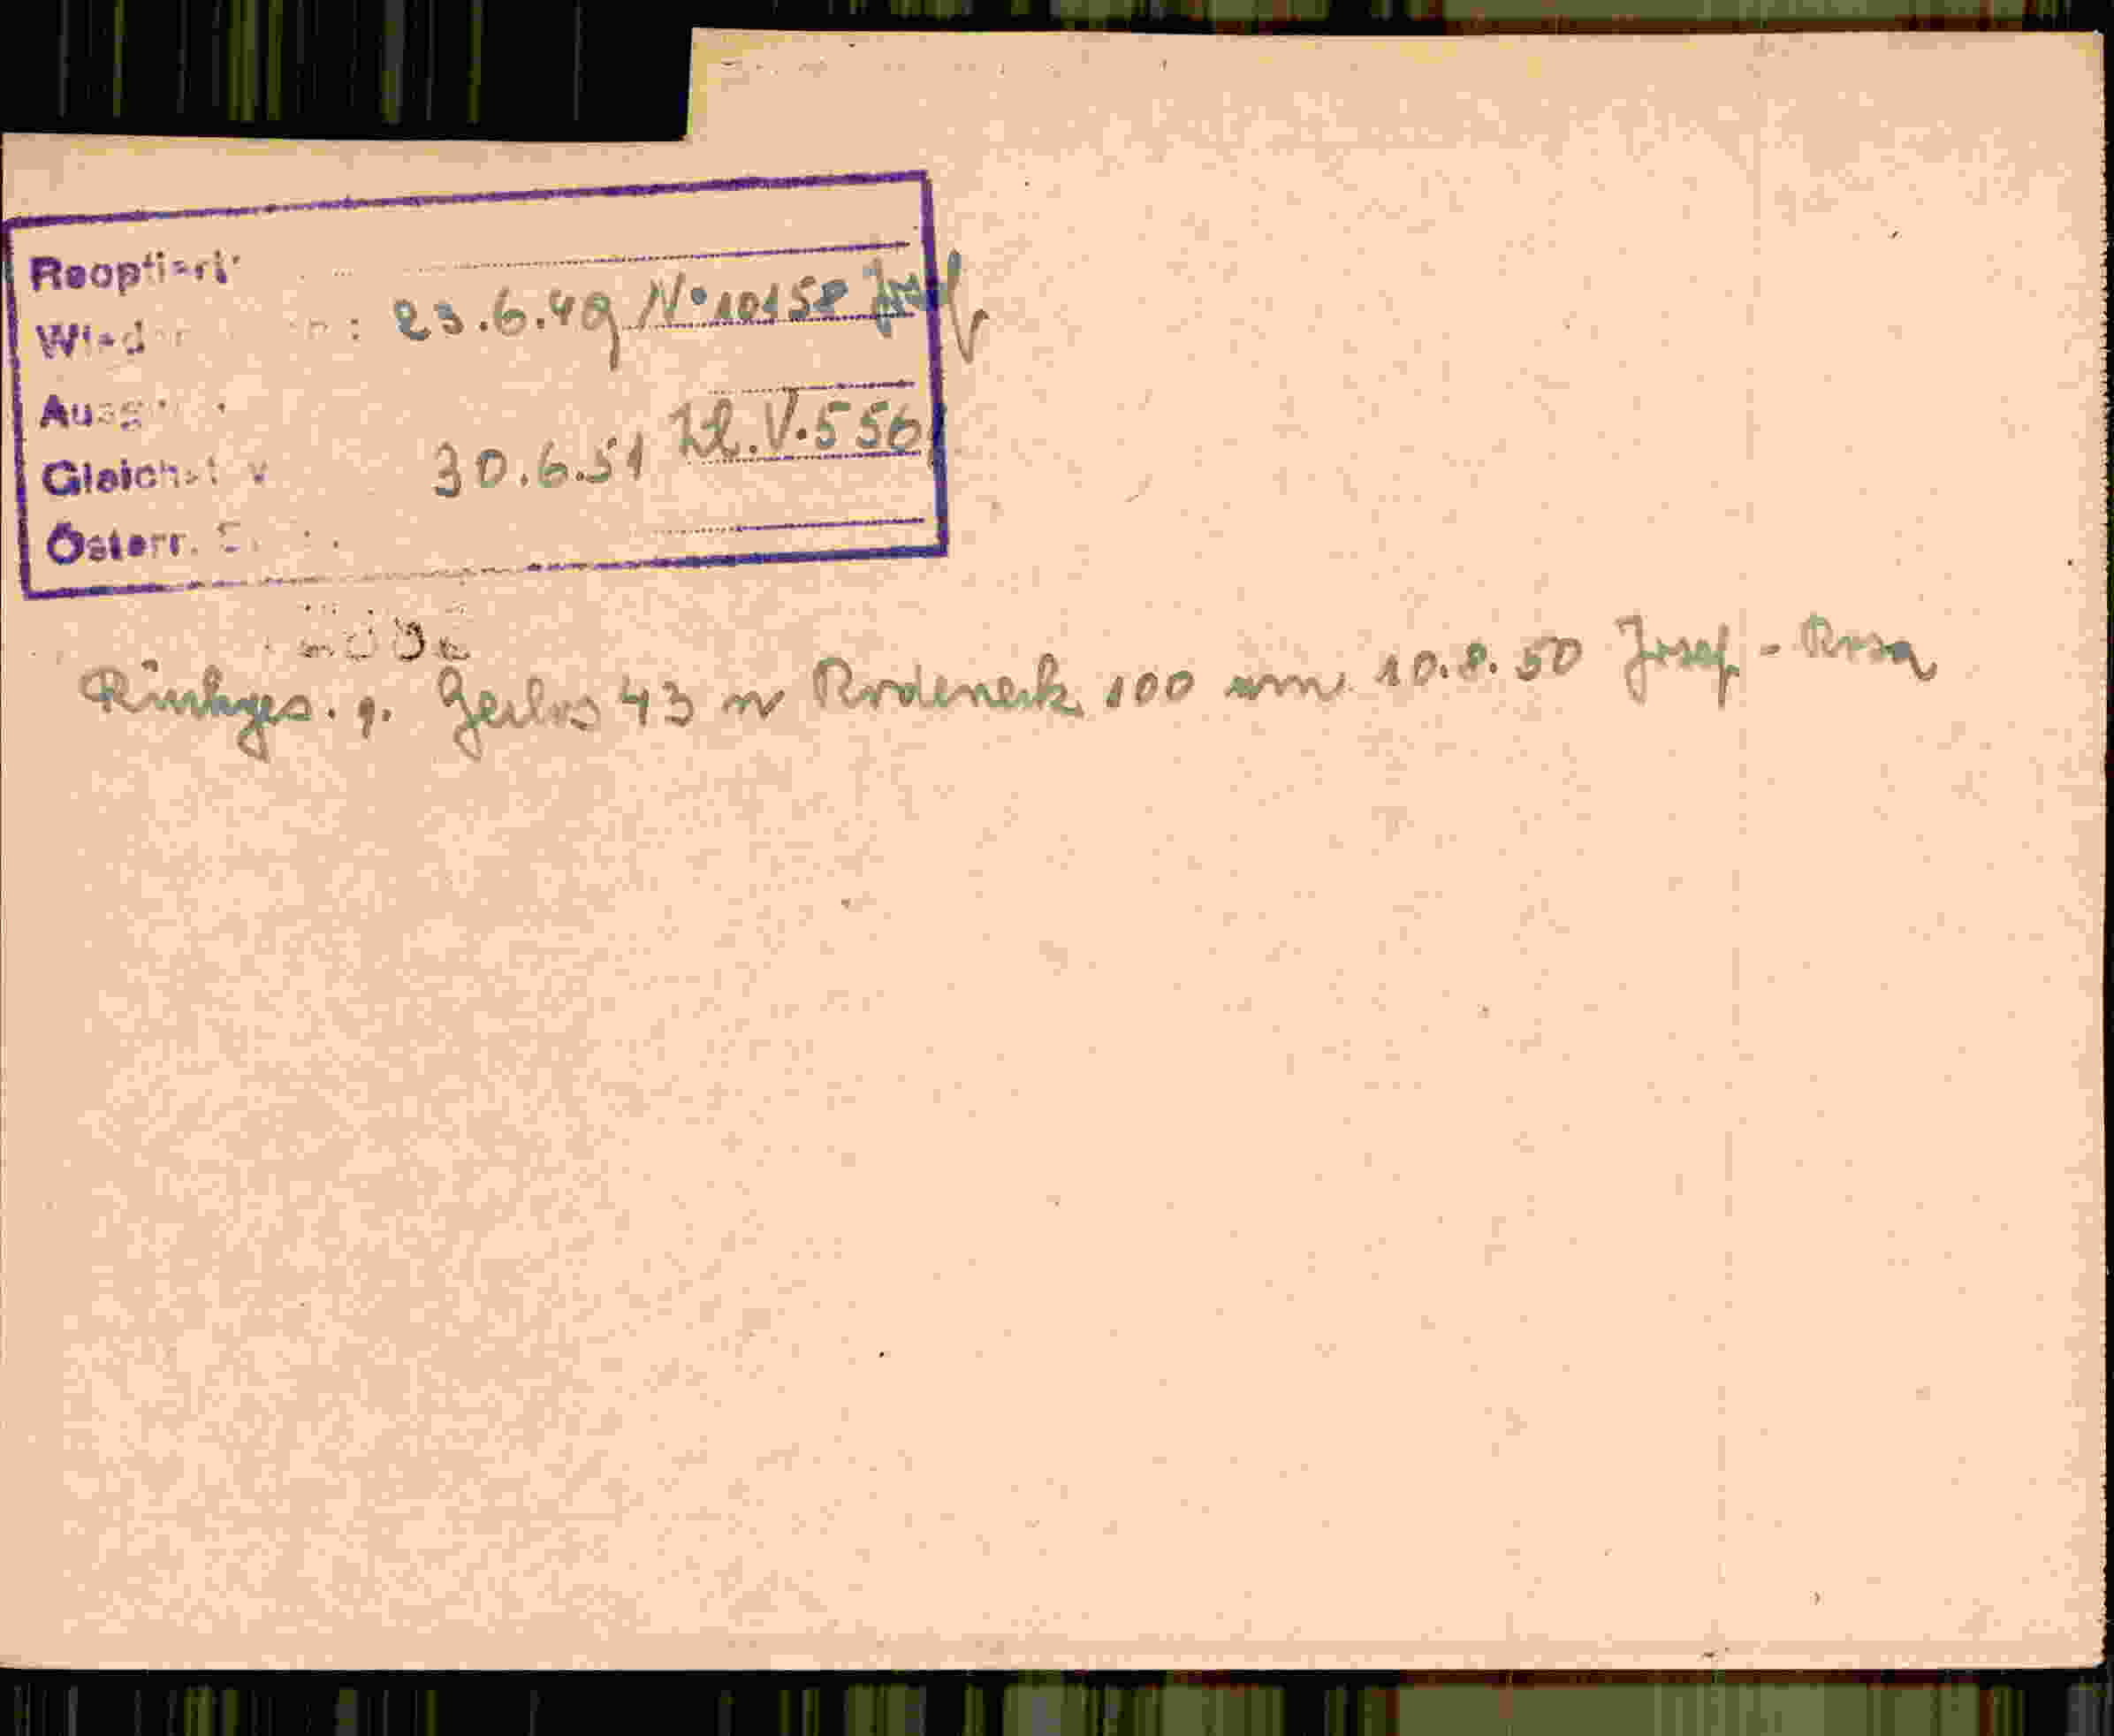 Reoptiert:
23.6.49 N° 10158 Josef
30.6.51 Zl.V.556
Österr.
Rückges. v. Gerlos 43 n Rodeneck 100 am 10.8.50 Josef - Rosa